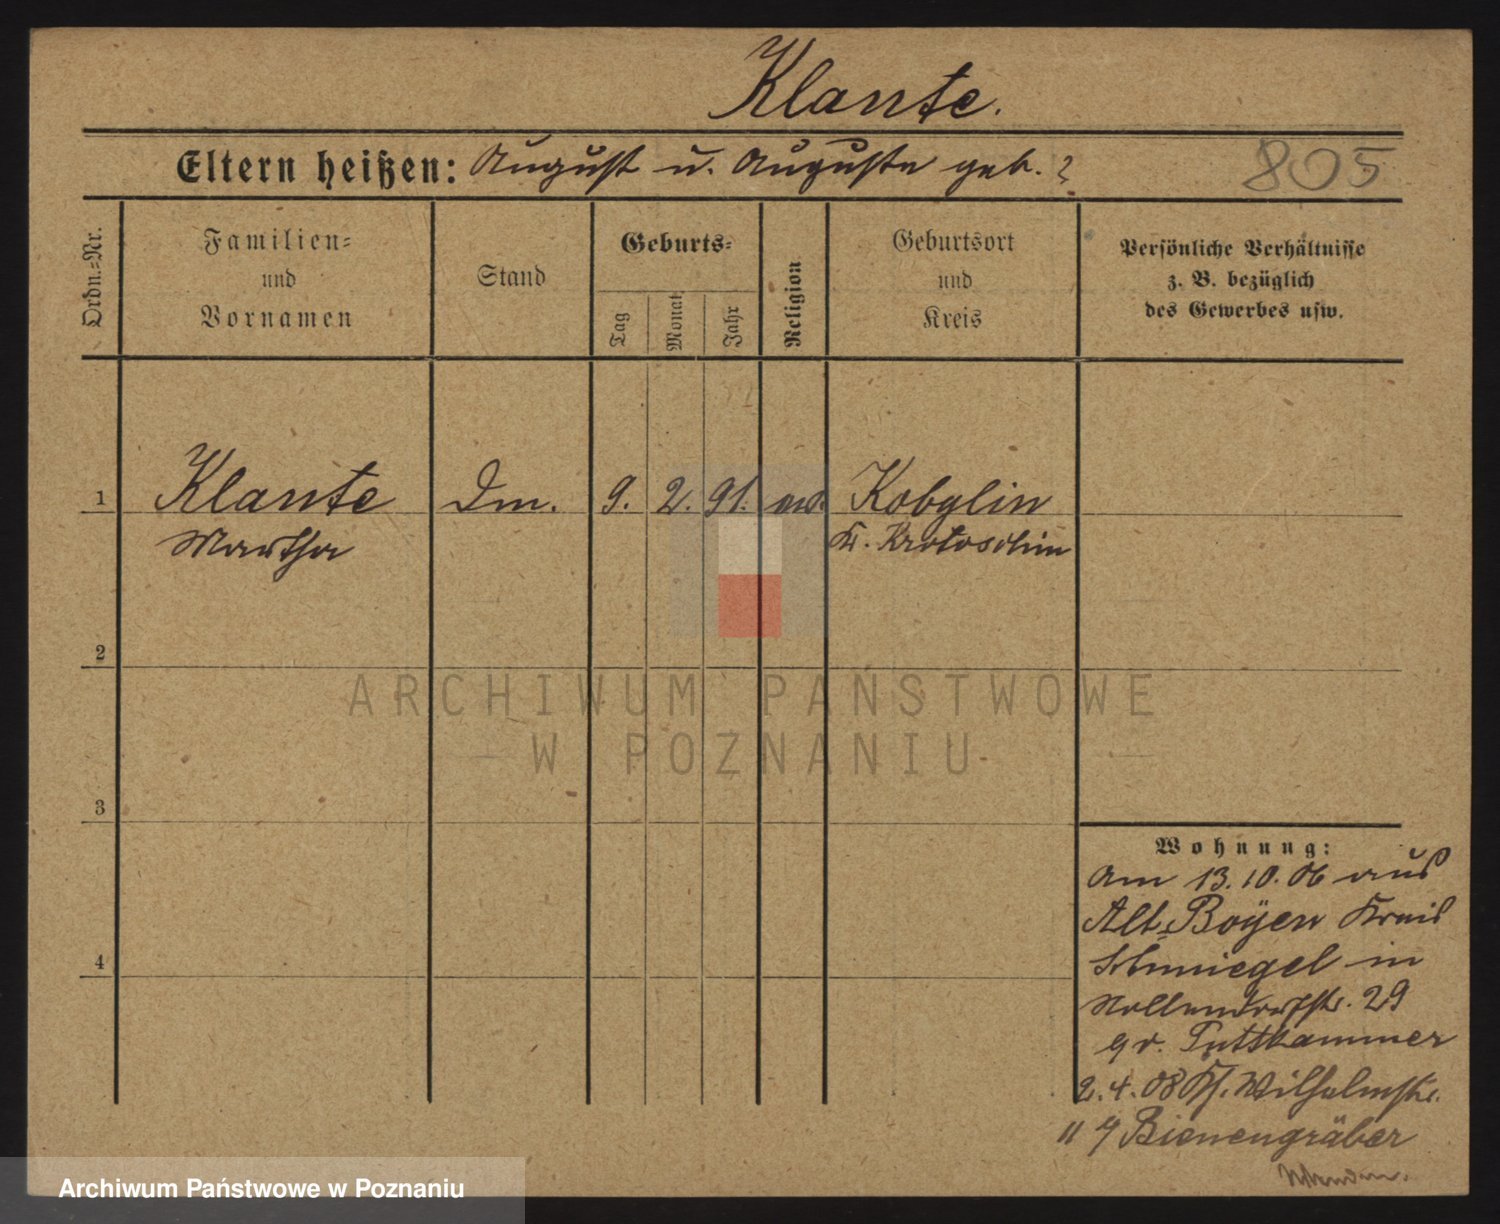 Klante.
Eltern heißen: August u. Auguste geb. ?
805
Ordn.=Nr.
Familien=
und
Vornamen
Stand
Geburts=
Tag
Monat
Jahr
Religion
Geburtsort
und
Kreis
Persönliche Verhältnisse
z. B. bezüglich
des Gewerbes usw.
1 Klante Dm. 9. 2. 91. ev. Kobylin
Martha Kr. Krotoschin
2
3
4
ARCHIWUM PAŃSTWOWE
W POZNANIU
Wohnung:
Am 13.10.06 aus
Alt-Boyen Kreis
Schmiegel in
Nollendorfstr. 29
b v. Puttkammer
2.4.08 Kl. Wilhelmstr.
11 Bienengräber
Archiwum Państwowe w Poznaniu